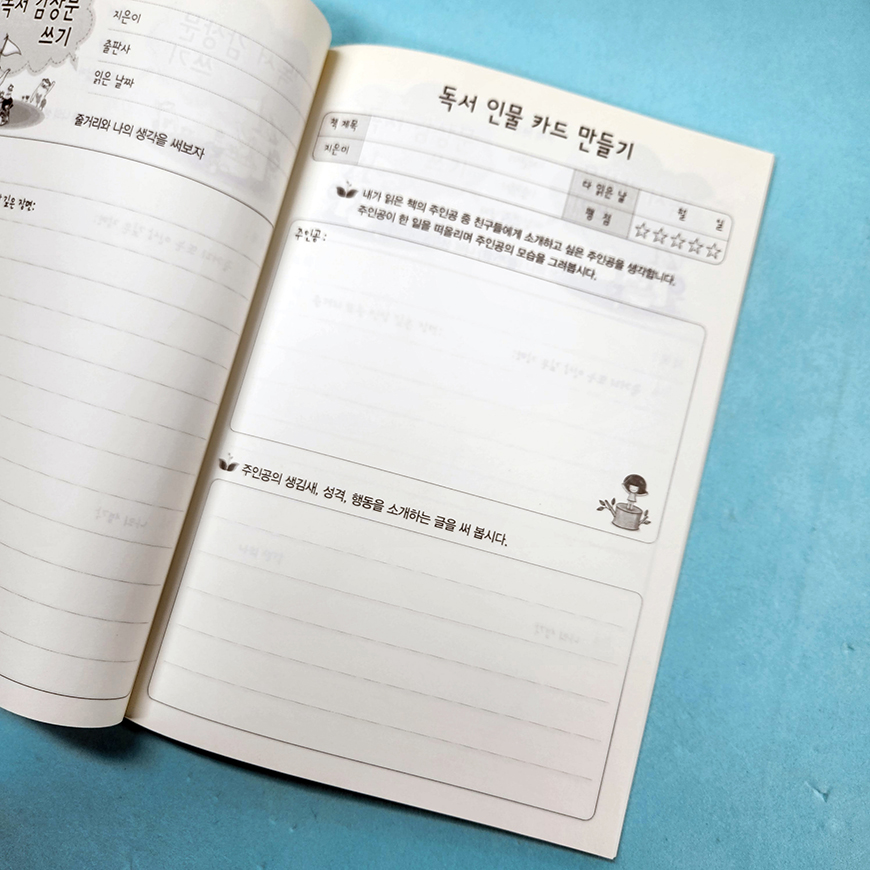 독서 감상문
쓰기
지은이
출판사
읽은 날짜
줄거리와 나의 생각을 써보자
깊은 장면:
독서 인물 카드 만들기
책 제목
지은이
다 읽은 날 월 일
평 점 ☆☆☆☆☆
내가 읽은 책의 주인공 중 친구들에게 소개하고 싶은 주인공을 생각합니다.
주인공이 한 일을 떠올리며 주인공의 모습을 그려봅시다.
주인공 :
주인공의 생김새, 성격, 행동을 소개하는 글을 써 봅시다.